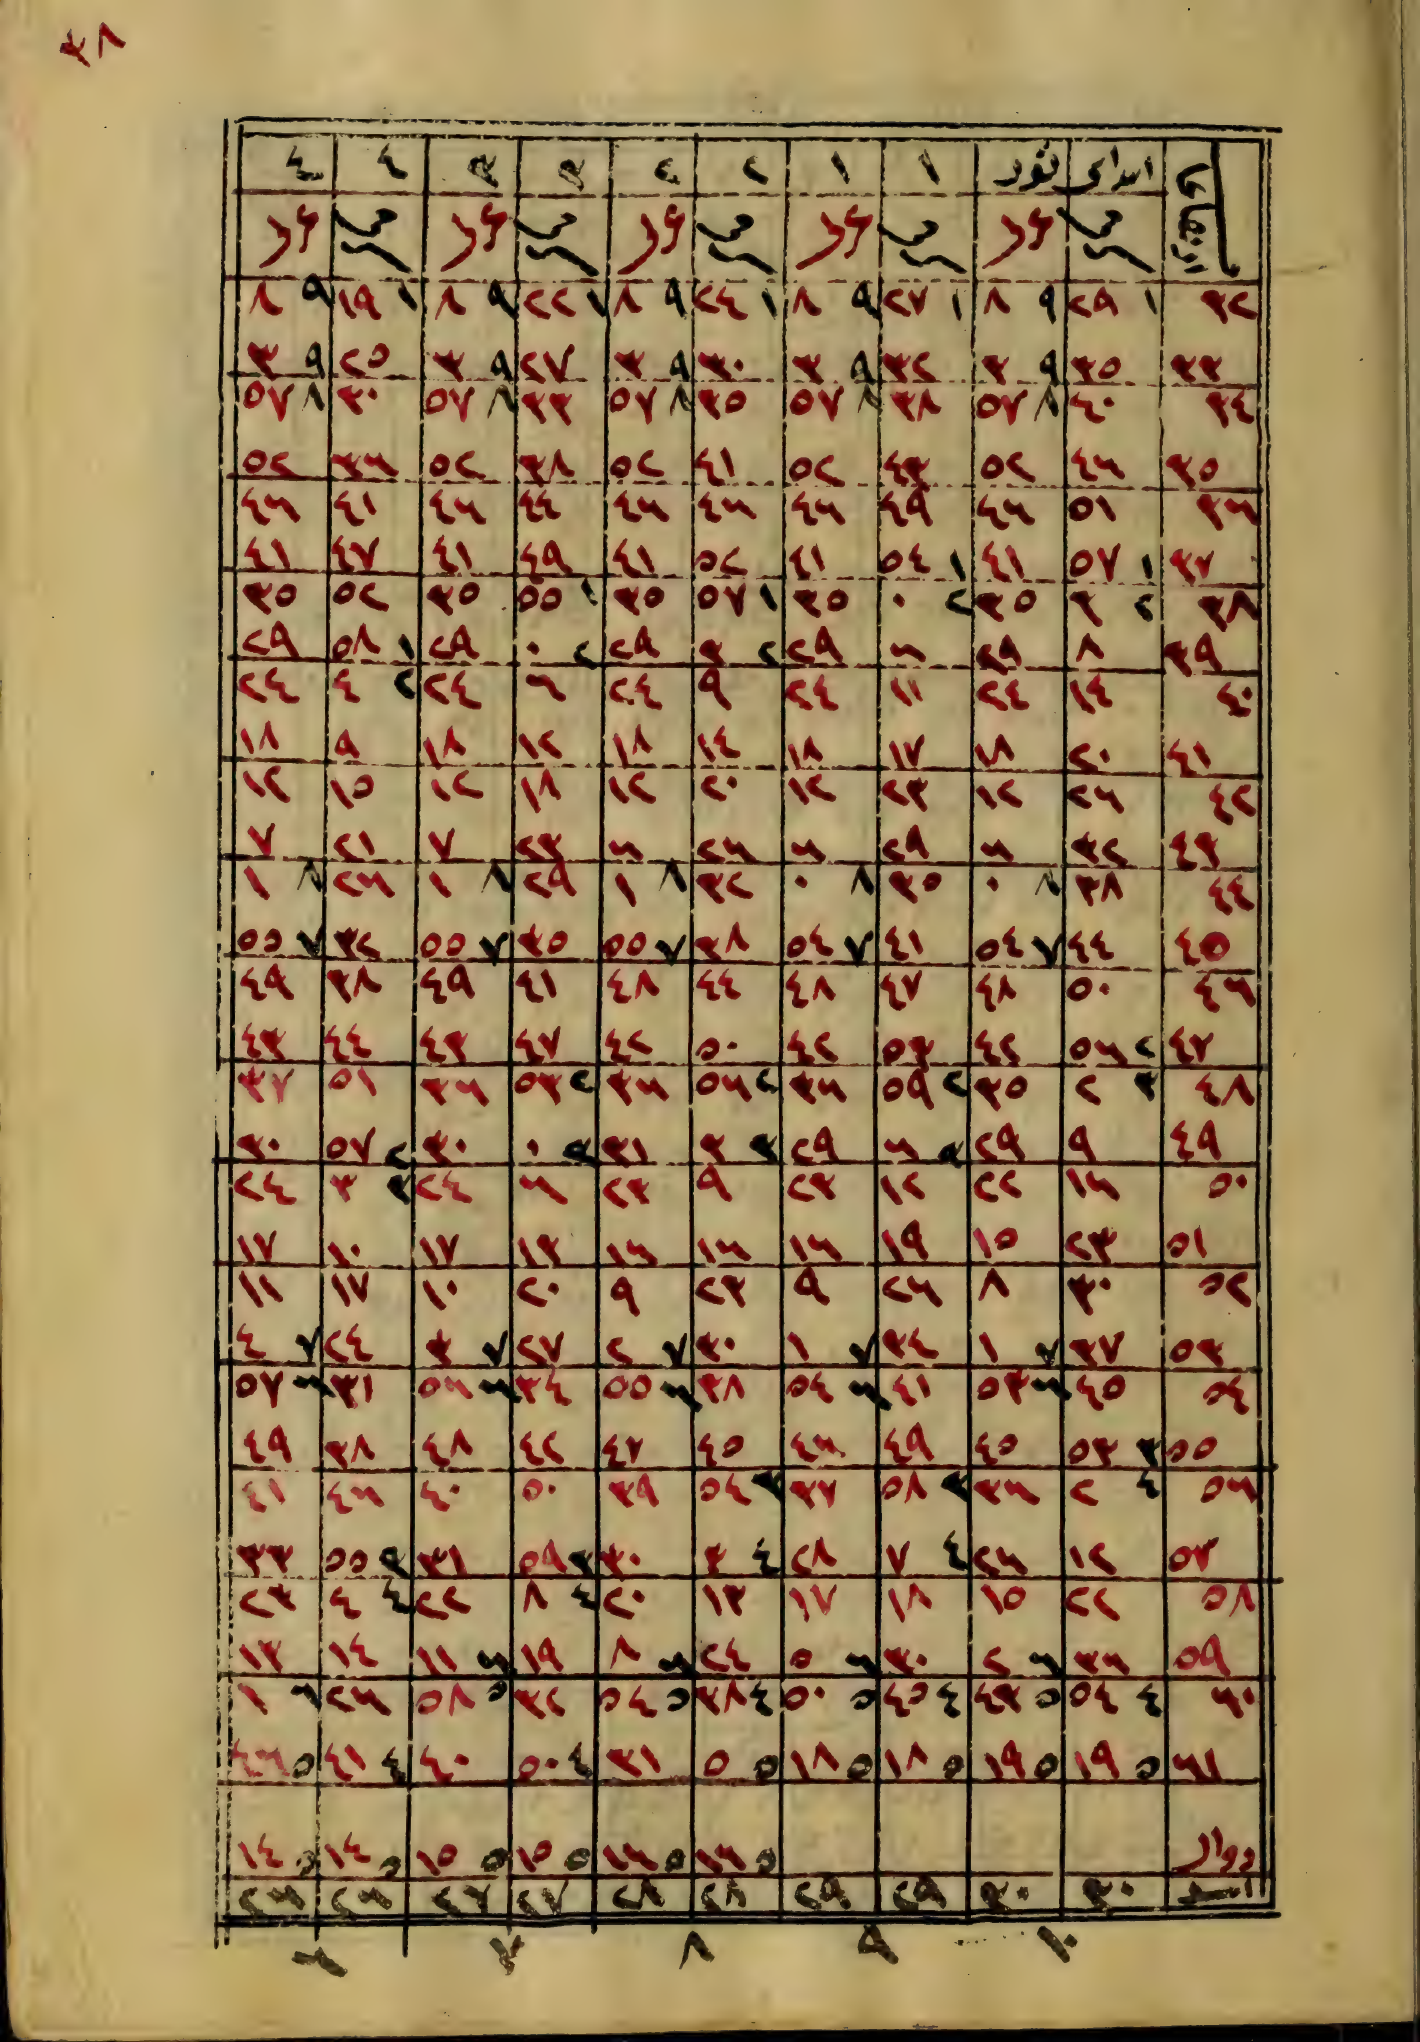 ٣٨
ابتداى ثور ١ ١ ٢ ٢ ٣ ٣ ٤ ٤
٣٢ ١ ٢٩ ٩ ٨ ١ ٢٧ ٩ ٨ ١ ٢٤ ٩ ٨ ١ ٢٢ ٩ ٨ ١ ١٩ ٩ ٨
٣٣ ٣٥ ٩ ٣ ٣٢ ٩ ٣ ٣٠ ٩ ٣ ٢٧ ٩ ٣ ٢٥ ٩ ٣
٣٤ ٤٠ ٨ ٥٧ ٣٨ ٨ ٥٧ ٣٥ ٨ ٥٧ ٣٣ ٨ ٥٧ ٣٠ ٨ ٥٧
٣٥ ٤٦ ٥٢ ٤٣ ٥٢ ٤١ ٥٢ ٣٨ ٥٢ ٣٦ ٥٢
٣٦ ٥١ ٤٦ ٤٩ ٤٦ ٤٦ ٤٦ ٤٤ ٤٦ ٤١ ٤٦
٣٧ ١ ٥٧ ٤١ ١ ٥٤ ٤١ ٥٢ ٤١ ٤٩ ٤١ ٤٧ ٤١
٣٨ ٢ ٣ ٣٥ ٢ ٠ ٣٥ ١ ٥٧ ٣٥ ١ ٥٥ ٣٥ ٥٢ ٣٥
٣٩ ٨ ٢٩ ٦ ٢٩ ٢ ٣ ٢٩ ٢ ٠ ٢٩ ١ ٥٨ ٢٩
٤٠ ١٤ ٢٤ ١١ ٢٤ ٩ ٢٤ ٦ ٢٤ ٢ ٤ ٢٤
٤١ ٢٠ ١٨ ١٧ ١٨ ١٤ ١٨ ١٢ ١٨ ٩ ١٨
٤٢ ٢٦ ١٢ ٢٣ ١٢ ٢٠ ١٢ ١٨ ١٢ ١٥ ١٢
٤٣ ٣٢ ٦ ٢٩ ٦ ٢٦ ٦ ٢٣ ٧ ٢١ ٧
٤٤ ٣٨ ٨ ٠ ٣٥ ٨ ٠ ٣٢ ٨ ١ ٢٩ ٨ ١ ٢٦ ٨ ١
٤٥ ٤٤ ٧ ٥٤ ٤١ ٧ ٥٤ ٣٨ ٧ ٥٥ ٣٥ ٧ ٥٥ ٣٢ ٧ ٥٥
٤٦ ٥٠ ٤٨ ٤٧ ٤٨ ٤٤ ٤٨ ٤١ ٤٩ ٣٨ ٤٩
٤٧ ٢ ٥٦ ٤٢ ٥٣ ٤٢ ٥٠ ٤٢ ٤٧ ٤٣ ٤٤ ٤٣
٤٨ ٣ ٢ ٣٥ ٢ ٥٩ ٣٦ ٢ ٥٦ ٣٦ ٢ ٥٣ ٣٦ ٥١ ٣٧
٤٩ ٩ ٢٩ ٣ ٦ ٢٩ ٣ ٣ ٣١ ٣ ٠ ٣٠ ٢ ٥٧ ٣٠
٥٠ ١٦ ٢٢ ١٢ ٢٣ ٩ ٢٣ ٦ ٢٤ ٣ ٣ ٢٤
٥١ ٢٣ ١٥ ١٩ ١٦ ١٦ ١٦ ١٣ ١٧ ١٠ ١٧
٥٢ ٣٠ ٨ ٢٦ ٩ ٢٣ ٩ ٢٠ ١٠ ١٧ ١١
٥٣ ٣٧ ٧ ١ ٣٤ ٧ ١ ٣٠ ٧ ٢ ٢٧ ٧ ٣ ٢٤ ٧ ٤
٥٤ ٤٥ ٦ ٥٣ ٤١ ٦ ٥٤ ٣٨ ٦ ٥٥ ٣٤ ٦ ٥٦ ٣١ ٦ ٥٧
٥٥ ٣ ٥٣ ٤٥ ٤٩ ٤٦ ٤٥ ٤٧ ٤٢ ٤٨ ٣٨ ٤٩
٥٦ ٤ ٢ ٣٦ ٣ ٥٨ ٣٧ ٣ ٥٤ ٣٩ ٥٠ ٤٠ ٤٦ ٤١
٥٧ ١٢ ٢٦ ٤ ٧ ٢٨ ٤ ٣ ٣٠ ٣ ٥٩ ٣١ ٣ ٥٥ ٣٣
٥٨ ٢٢ ١٥ ١٨ ١٧ ١٣ ٢٠ ٤ ٨ ٢٢ ٤ ٤ ٢٣
٥٩ ٣٦ ٦ ٢ ٣٠ ٦ ٥ ٢٤ ٦ ٨ ١٩ ٦ ١١ ١٤ ١٣
٦٠ ٤ ٥٤ ٥ ٤٣ ٤ ٤٥ ٥ ٥٠ ٤ ٣٨ ٥ ٥٤ ٣٢ ٥ ٥٨ ٢٦ ٦ ١
٦١ ٥ ١٩ ٥ ١٩ ٥ ١٨ ٥ ١٨ ٥ ٥ ٣١ ٤ ٥٠ ٤٠ ٤ ٤١ ٥ ٤٦
٥ ١٦ ٥ ١٦ ٥ ١٥ ٥ ١٥ ٥ ١٤ ٥ ١٤
اسد ٣٠ ٣٠ ٢٩ ٢٩ ٢٨ ٢٨ ٢٧ ٢٧ ٢٦ ٢٦
١٠ ٩ ٨ ٧ ٦